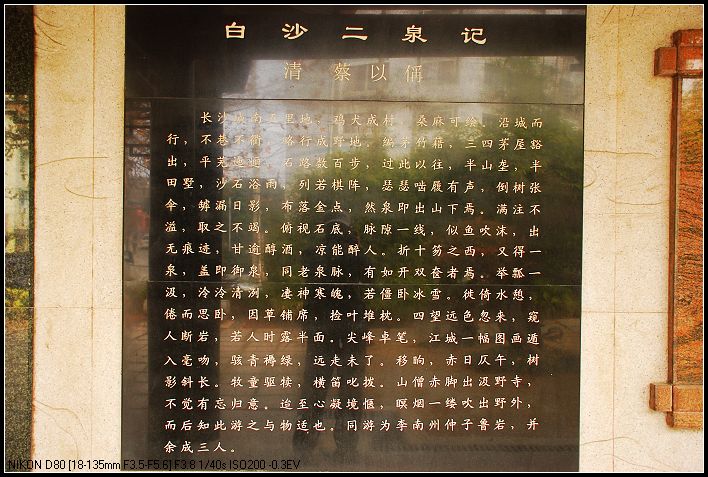 白沙二泉记
清 蔡以偁
长沙城南五里地，鸡犬成村，桑麻可绘。沿城而
行，不巷不衢，略行成野地。编茅竹藉，三四茅屋豁
出，平芜逦迤，石路数百步，过此以往，半山垄，半
田墅，沙石浴雨，列若棋阵，瑟瑟啮履有声，倒树张
伞，罅漏日影，布落金点，然泉即出山下焉。满注不
溢，取之不竭。俯视石底，脉隙一线，似鱼吹沫，出
无痕迹，甘逾醇酒，凉能醉人。折十笏之西，又得一
泉，盖即御泉，同老泉脉，有如开双奁者焉。举瓢一
汲，泠泠清冽，凄神寒魄，若僵卧冰雪。徙倚水憩，
倦而思卧，因草铺席，捡叶堆枕。四望远色忽来，窥
人断岩，若人时露半面。尖峰卓笔，江城一幅图画遁
入毫吻，骇青褥绿，远走未了。移晌，赤日仄午，树
影斜长。牧童驱犊，横笛叱拨。山僧赤脚出汲野寺，
不觉有忘归意。迨至心凝境惬，暝烟一缕吹出野外，
而后知此游之与物适也。同游为李南州仲子鲁岩，并
余成三人。
NIKON D80 [18-135mm F3.5-F5.6] F3.8 1/40s ISO200 -0.3EV